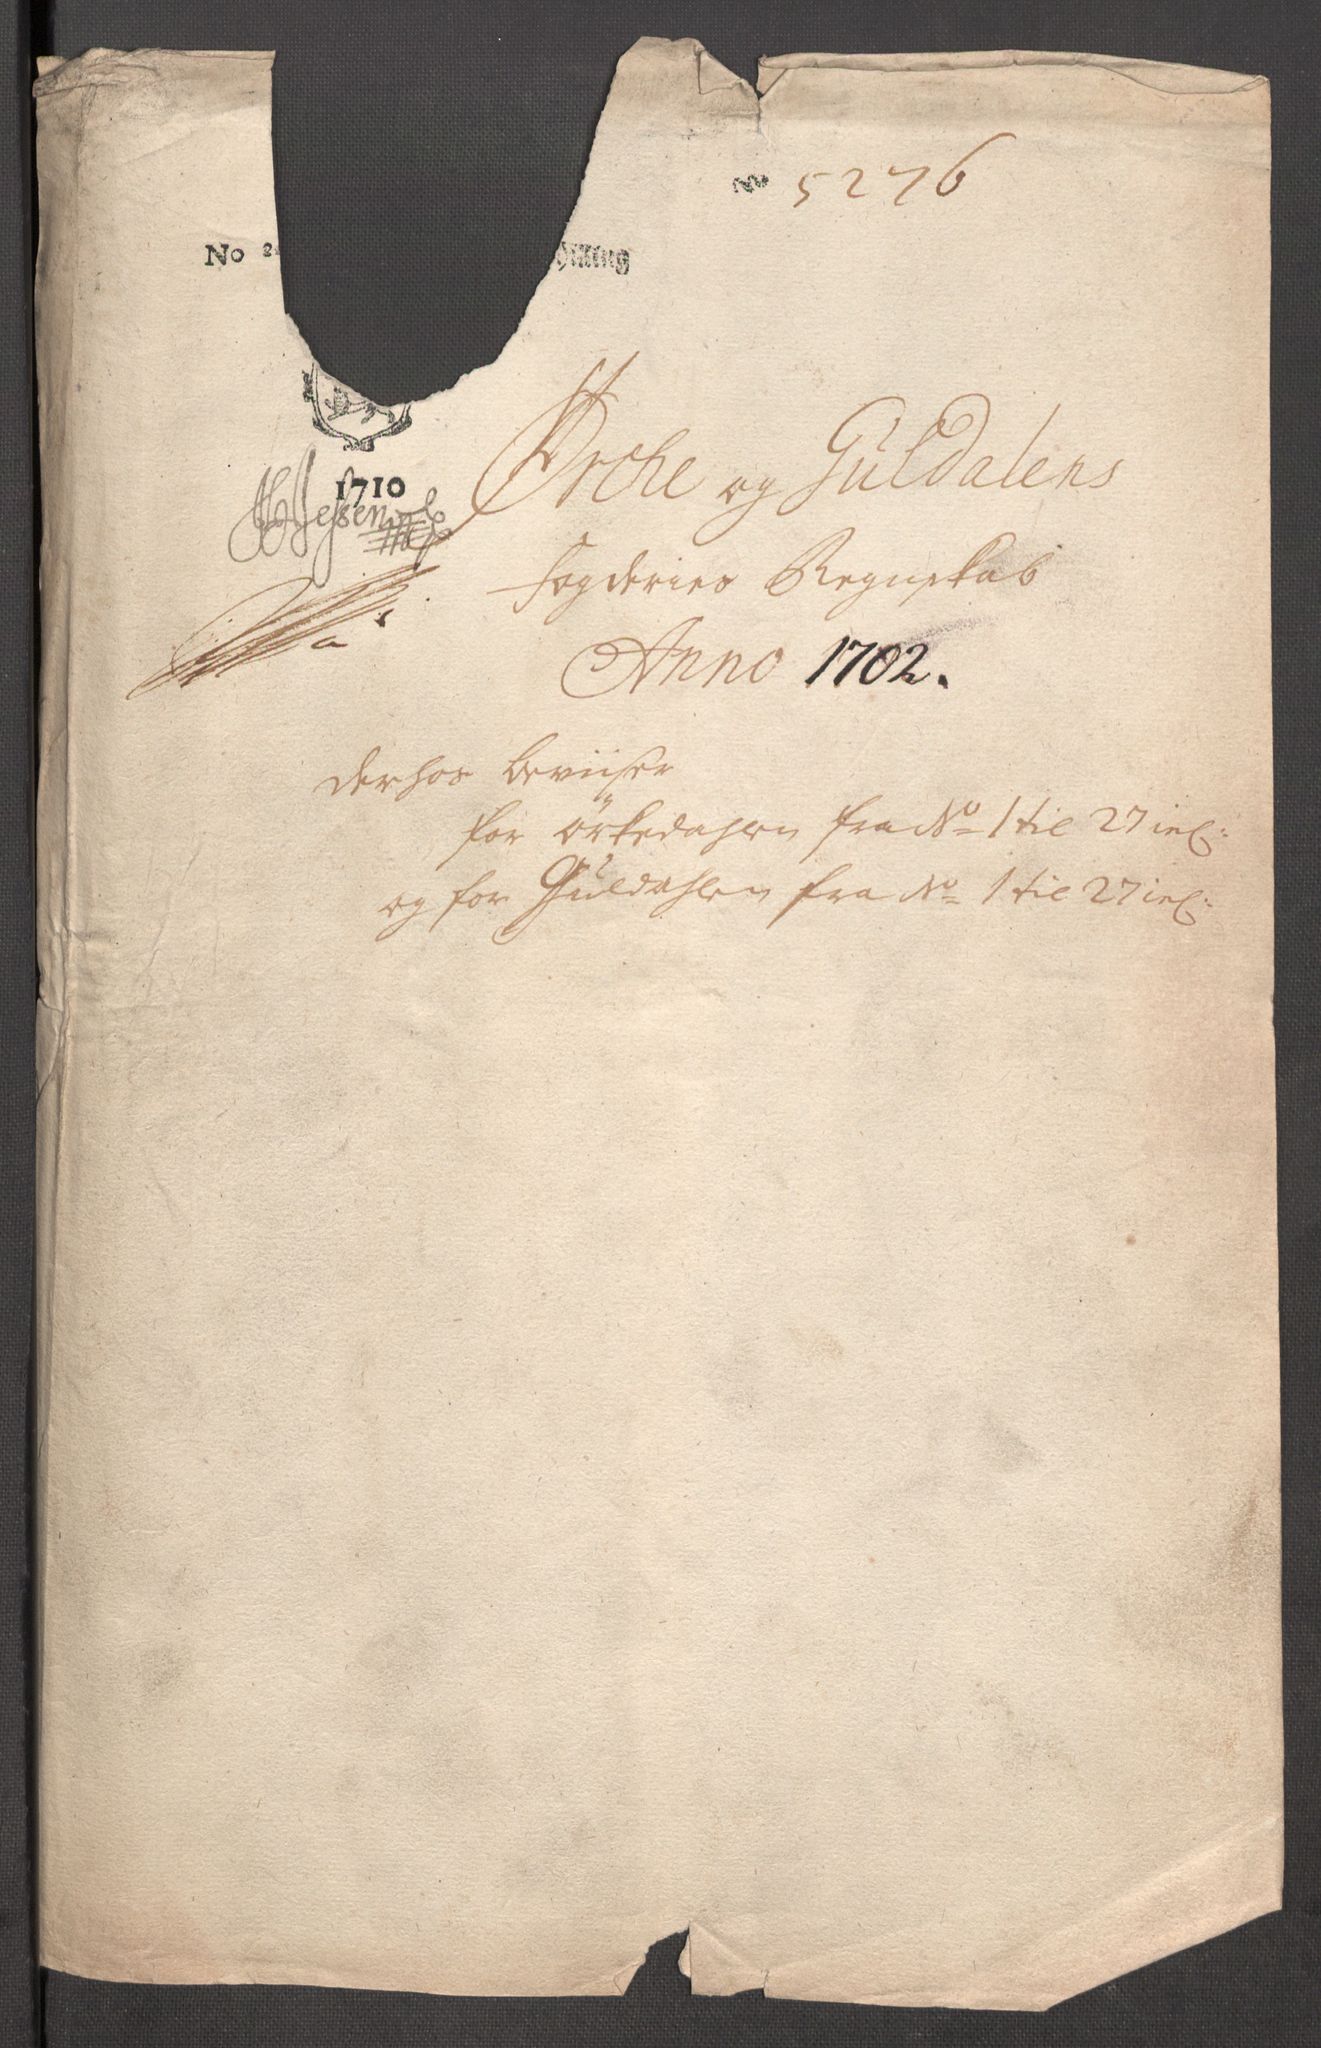 No 5276
No 2 skilling
1710
HWessel
Örche og Guldalens
Fogderies Regnskab
Anno 1702.
derhos beviiser
for örkedahlen fra No 1 til 27 incl:
og for Guldahlen fra No 1 til 27 incl: